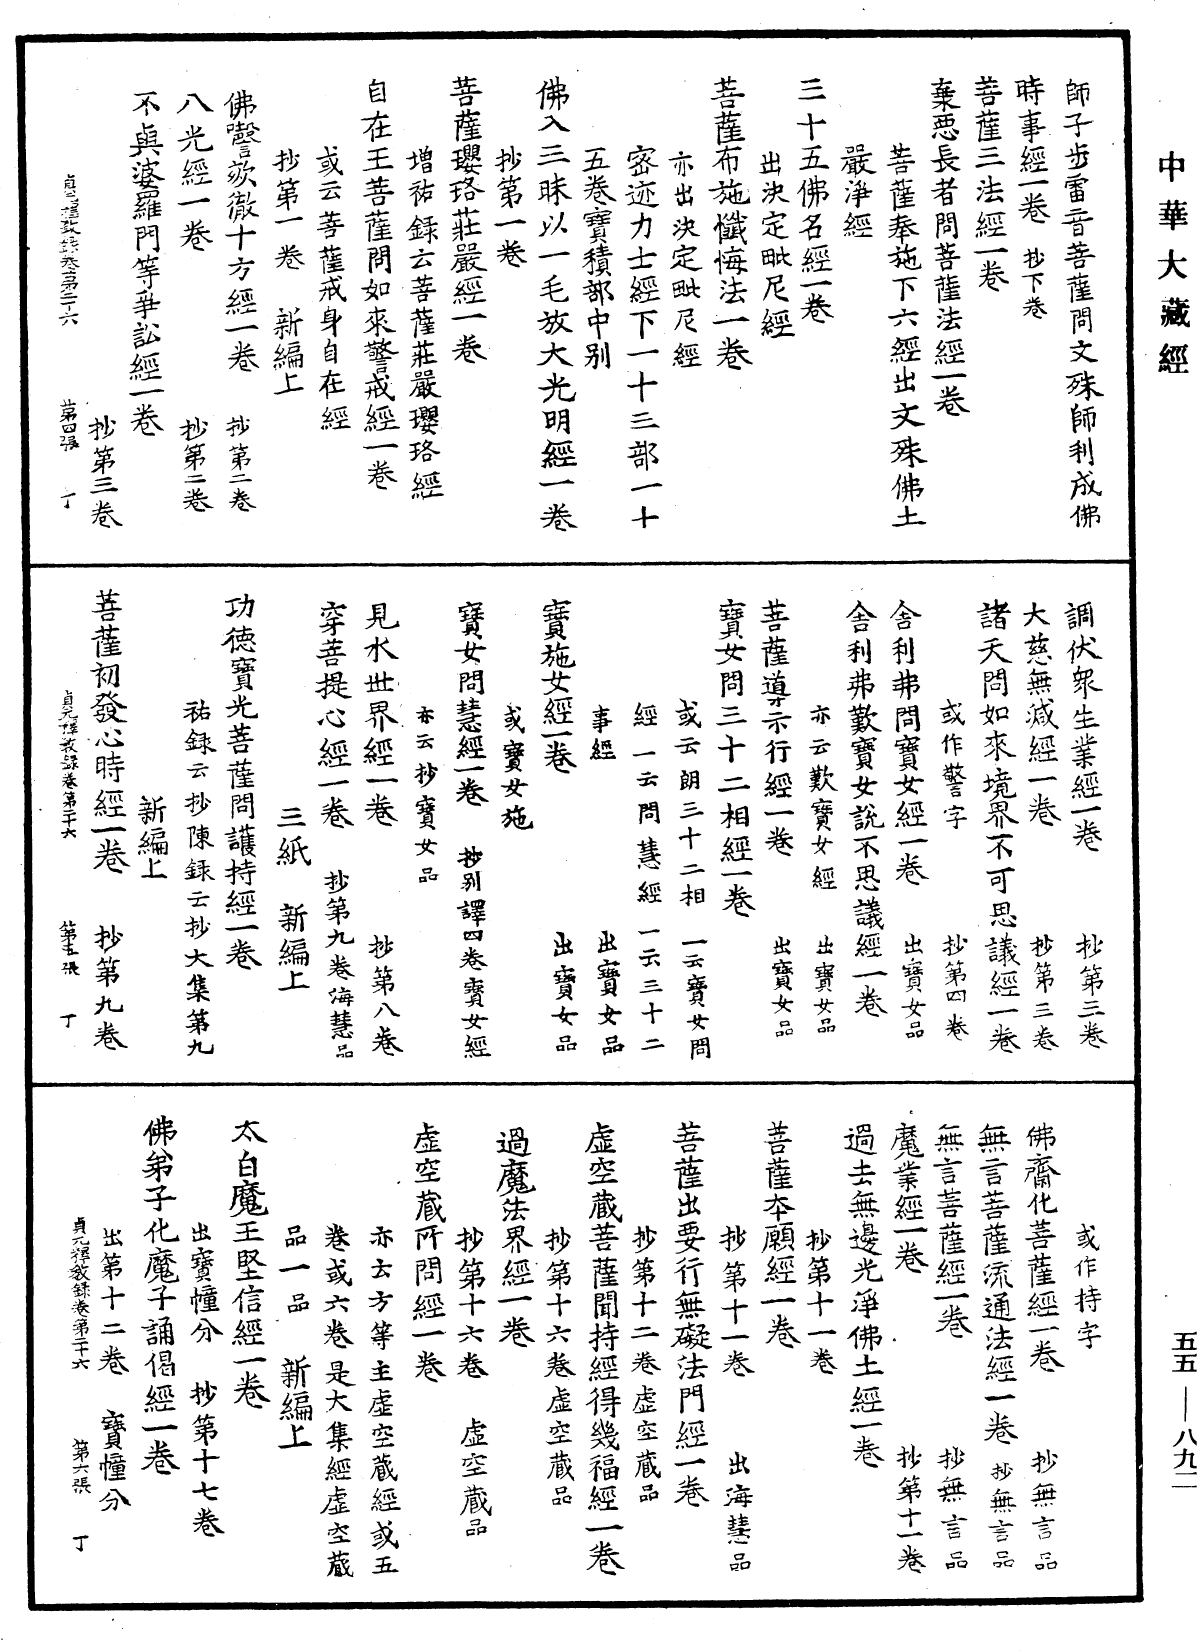 中華大藏經
師子步雷音菩薩問文殊師利成佛
時事經一卷　抄下卷
菩薩三法經一卷
棄惡長者問菩薩法經一卷
菩薩奉施下六經出文殊佛土
嚴淨經
三十五佛名經一卷
出決定毗尼經
菩薩布施懺悔法一卷
亦出決定毗尼經
密迹力士經下一十三部一十
五卷寶積部中別
佛入三昧以一毛放大光明經一卷
抄第一卷
菩薩瓔珞莊嚴經一卷
增祐錄云菩薩莊嚴瓔珞經
自在王菩薩問如來警戒經一卷
或云菩薩戒身自在經
抄第一卷　新編上
佛謦欬徹十方經一卷　抄第二卷
八光經一卷　抄第二卷
不與婆羅門等爭訟經一卷
抄第三卷
貞元釋教錄卷第二十六　第四張　丁
調伏眾生業經一卷　抄第三卷
大慈無減經一卷　抄第三卷
諸天問如來境界不可思議經一卷
或作警字　抄第四卷
舍利弗問寶女經一卷　出寶女品
舍利弗歎寶女說不思議經一卷
亦云歎寶女經　出寶女品
菩薩導示行經一卷　出寶女品
寶女問三十二相經一卷
或云朗三十二相　一云寶女問
經　一云問慧經　一云三十二
事經　出寶女品
寶施女經一卷　出寶女品
或寶女施
寶女問慧經一卷　抄別譯四卷寶女經
亦云抄寶女品
見水世界經一卷　抄第八卷
穿菩提心經一卷　抄第九卷海慧品
三紙　新編上
功德寶光菩薩問護持經一卷
祐錄云抄陳錄云抄大集第九
新編上
菩薩初發心時經一卷　抄第九卷
貞元釋教錄卷第二十六　第五張　丁
或作持字
佛齋化菩薩經一卷　抄無言品
無言菩薩流通法經一卷　抄無言品
無言菩薩經一卷　抄無言品
魔業經一卷　抄第十一卷
過去無邊光淨佛土經一卷
抄第十一卷
菩薩本願經一卷
抄第十一卷　出海慧品
菩薩出要行無礙法門經一卷
抄第十二卷虛空藏品
虛空藏菩薩聞持經得幾福經一卷
抄第十六卷虛空藏品
過魔法界經一卷
抄第十六卷　虛空藏品
虛空藏所問經一卷
亦云方等主虛空藏經或五
卷或六卷是大集經虛空藏
品一品　新編上
太白魔王堅信經一卷
出寶幢分　抄第十七卷
佛弟子化魔子誦偈經一卷
出第十二卷　寶幢分
貞元釋教錄卷第二十六　第六張　丁
五五—八九二